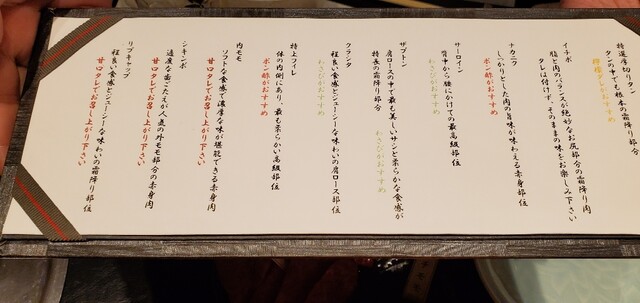 特選厚切りタン
タンの中でも根本の霜降り部分
イチボ
脂と肉のバランスが絶妙なお尻部分の霜降り肉
タレは付けず、そのままの味をお楽しみ下さい
ナカニク
しっかりとした肉の旨味が味わえる赤身部位
ポン酢がおすすめ
サーロイン
背中から腰にかけての最高級部位
わさびがおすすめ
ザブトン
肩ロースの中で最も美しいサシと柔らかな食感が
特長の霜降り部分
わさびがおすすめ
クラシタ
程良い食感とジューシーな味わいの肩ロース部位
わさびがおすすめ
特上フィレ
体の内側にあり、最も柔らかい高級部位
ポン酢がおすすめ
内モモ
ソフトな食感で濃厚な味が堪能できる赤身肉
甘口タレでお召し上がり下さい
シキンボ
適度な歯ごたえが人気の外モモ部分の赤身肉
甘口タレでお召し上がり下さい
リブキャップ
程良い食感とジューシーな味わいの霜降り部位
甘口タレでお召し上がり下さい